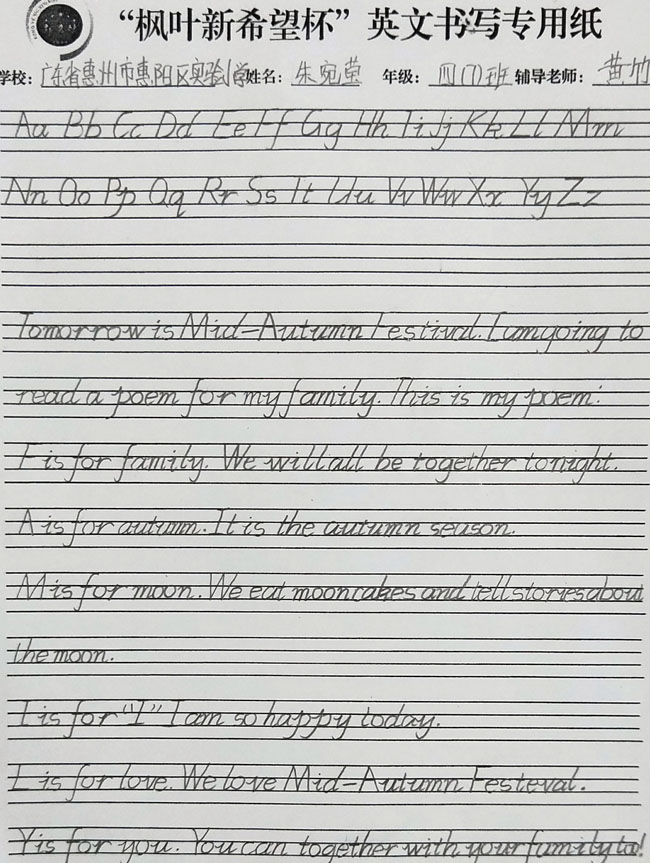 “枫叶新希望杯”英文书写专用纸
学校: 广东省惠州市惠阳区实验小学 姓名: 朱宛莹 年级: 四(7)班 辅导老师: 黄竹
Aa Bb Cc Dd Ee Ff Gg Hh Ii Jj Kk Ll Mm
Nn Oo Pp Qq Rr Ss Tt Uu Vv Ww Xx Yy Zz
Tomorrow is Mid-Autumn Festival. I am going to
read a poem for my family. This is my poem:
F is for family. We will all be together tonight.
A is for autumn. It is the autumn season.
M is for moon. We eat mooncakes and tell stories about
the moon.
I is for “I” I am so happy today.
L is for love. We love Mid-Autumn Festeval.
Y is for you. You can together with your family to!